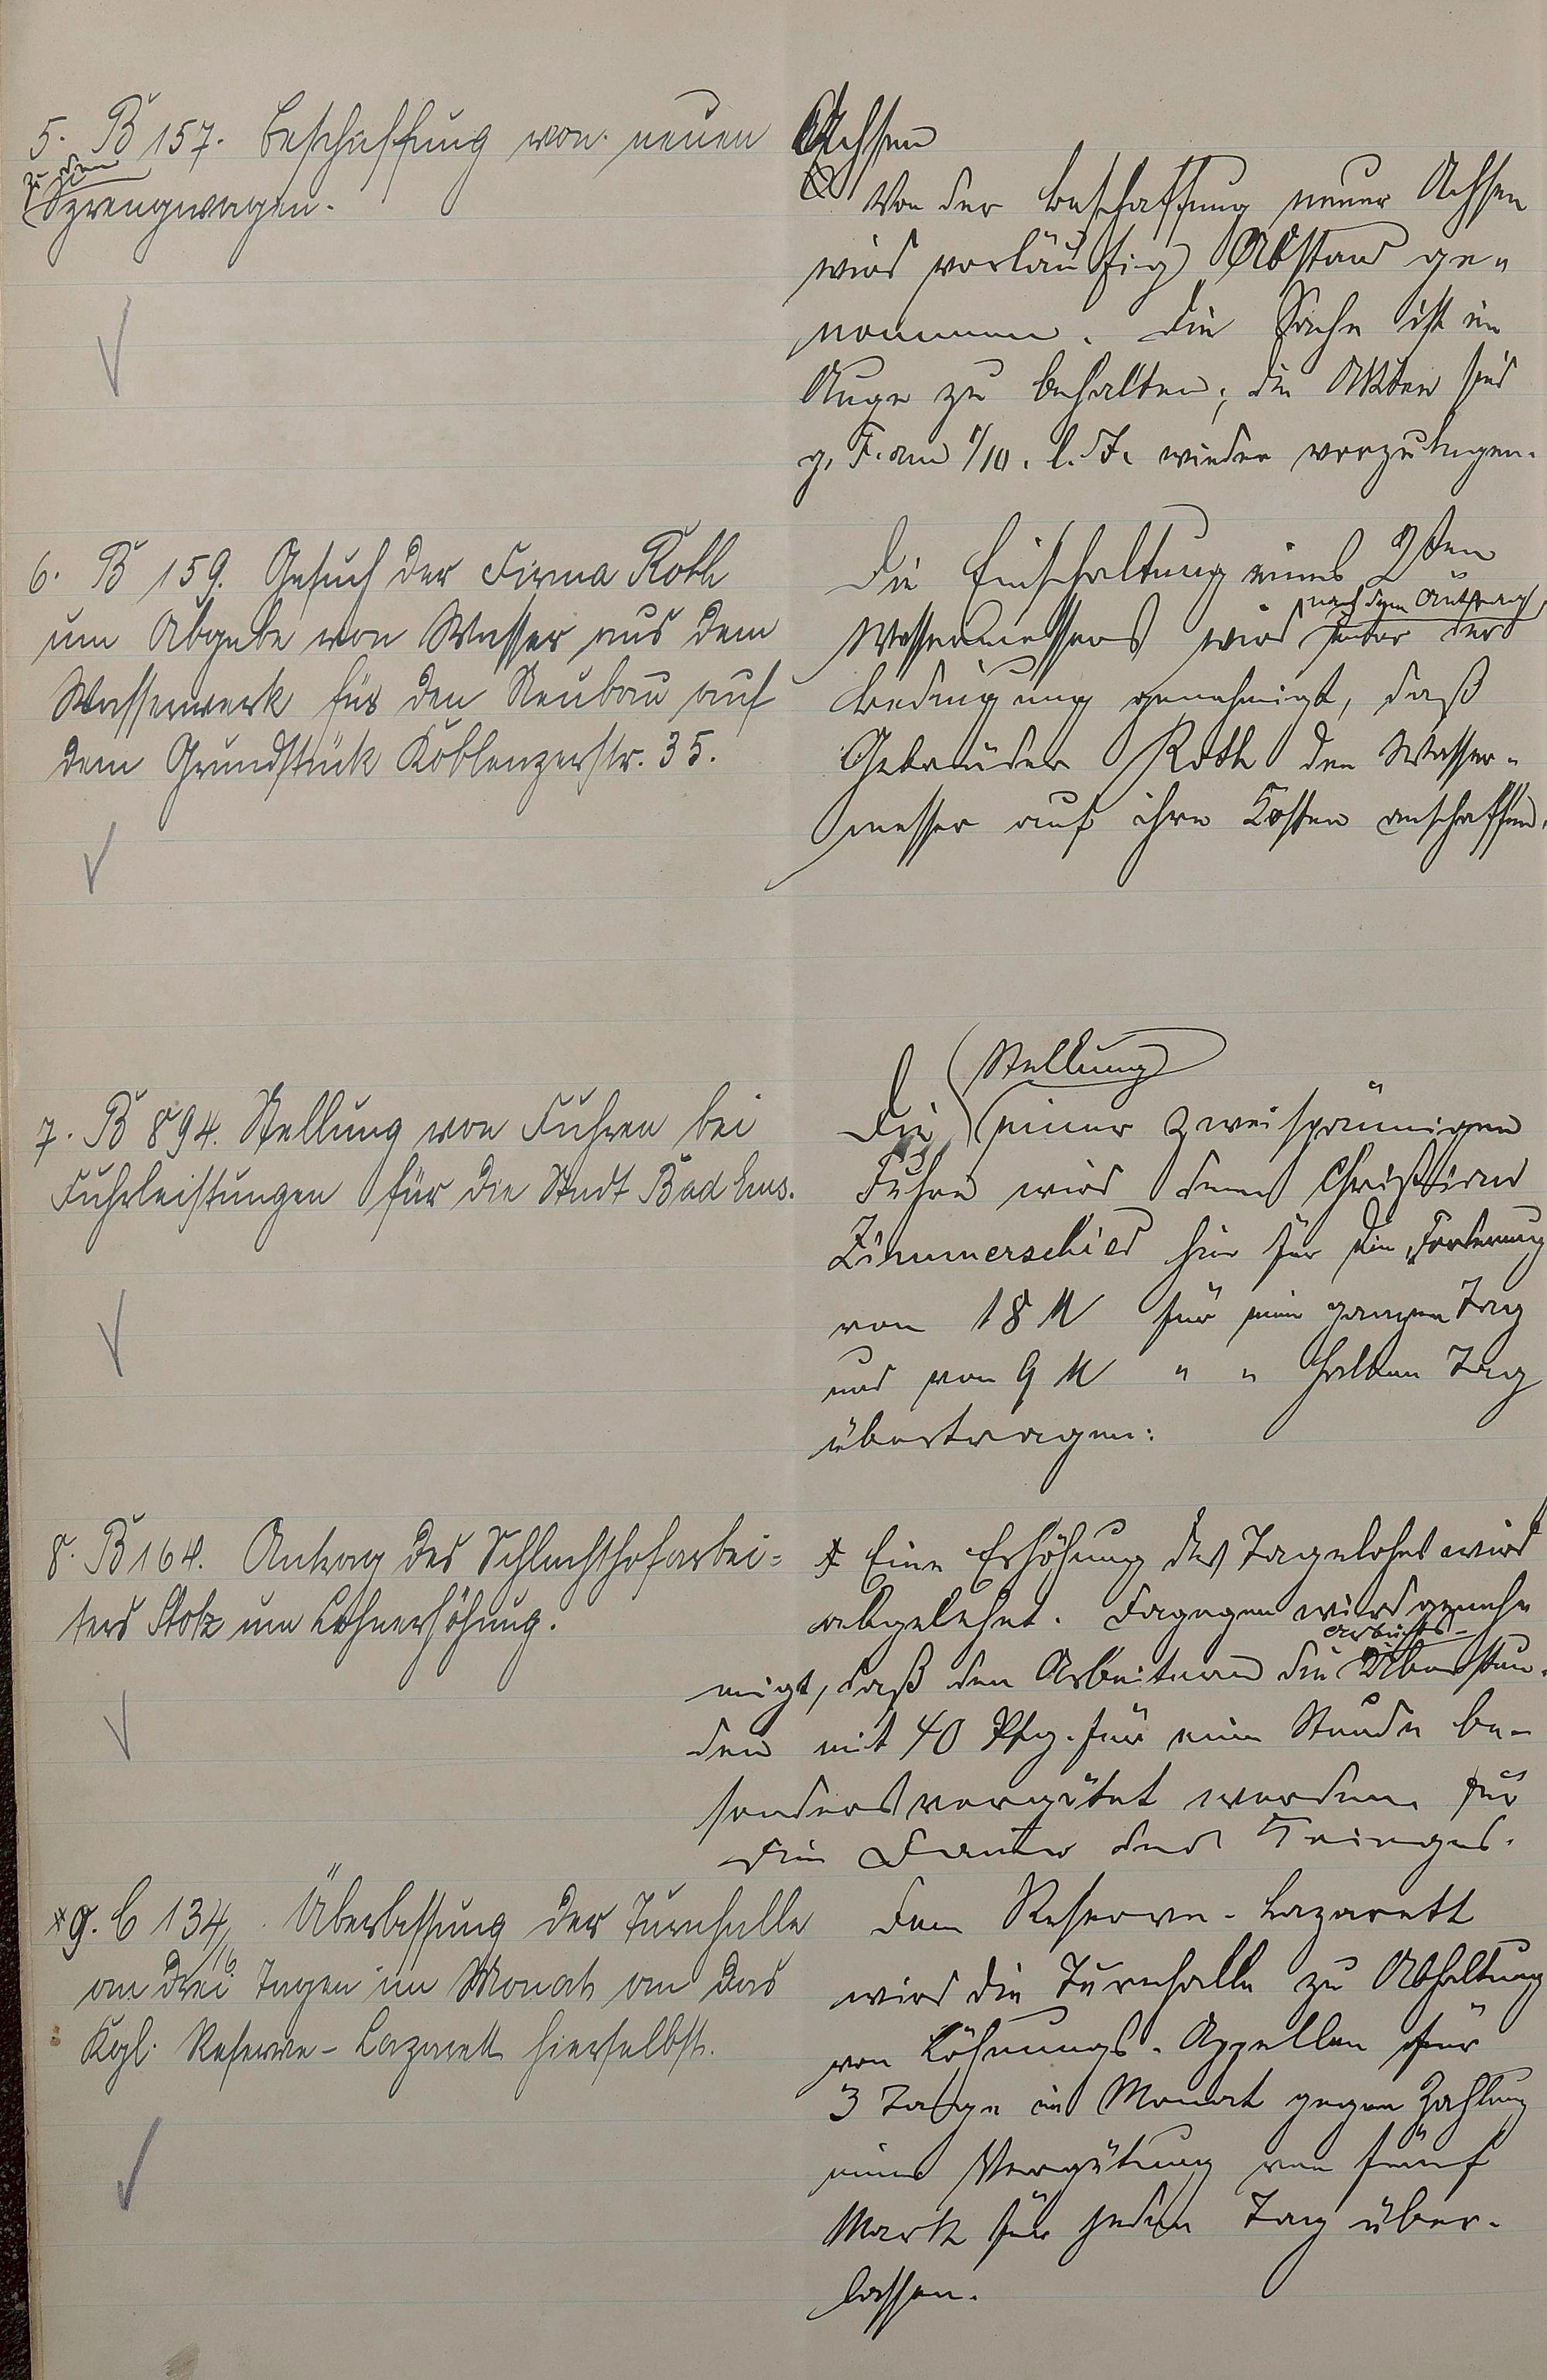 5. B 157. Beschaffung von neuen Achsen
zu dem
Sprengwagen.
Von der Beschaffung neuer Achsen
wird vorläufig Abstand ge-
nommen. Die Sache ist im
Auge zu behalten; die Akten sind
g. F. am 1/10. l. Js. wieder vorzulegen.
6. B 159. Gesuch der Firma Roth
um Abgabe von Wasser aus dem
Wasserwerk für den Neubau auf
dem Grundstück Koblenzerstr. 35.
Die Einschaltung eines 2ten
nach dem Antrag
Wassermessers wird unter der
Bedingung genehmigt, daß
Gebrüder Roth den Wasser-
messer auf ihre Kosten anschaffen.
7. B 894. Stellung von Fuhren bei
Fuhrleistungen für die Stadt Bad Ems.
Stellung
Die einer zweispännigen
Fuhre wird dem Christian
Zimmerschied hier für die Forderung
von 18 M für einen ganzen Tag
und von 9 M " " halben Tag
übertragen.
8. B 164. Antrag des Schlachthofarbei-
ters Stotz um Lohnerhöhung.
Eine Erhöhung des Tagelohns wird
abgelehnt. Dagegen wird geneh-
Arbeits-
migt, daß den Arbeitern die Überstun-
den mit 40 Pfg. für eine Stunde be-
sonders vergütet werden für
die Dauer des Krieges.
*9. C 134/16. Überlassung der Turnhalle
an drei Tagen im Monat an das
Kgl. Reserve-Lazarett hierselbst.
Dem Reserve-Lazarett
wird die Turnhalle zu Abhaltung
von Löhnungs-Appellen für
3 Tage im Monat gegen Zahlung
einer Vergütung von fünf
Mark für jeden Tag über-
lassen.